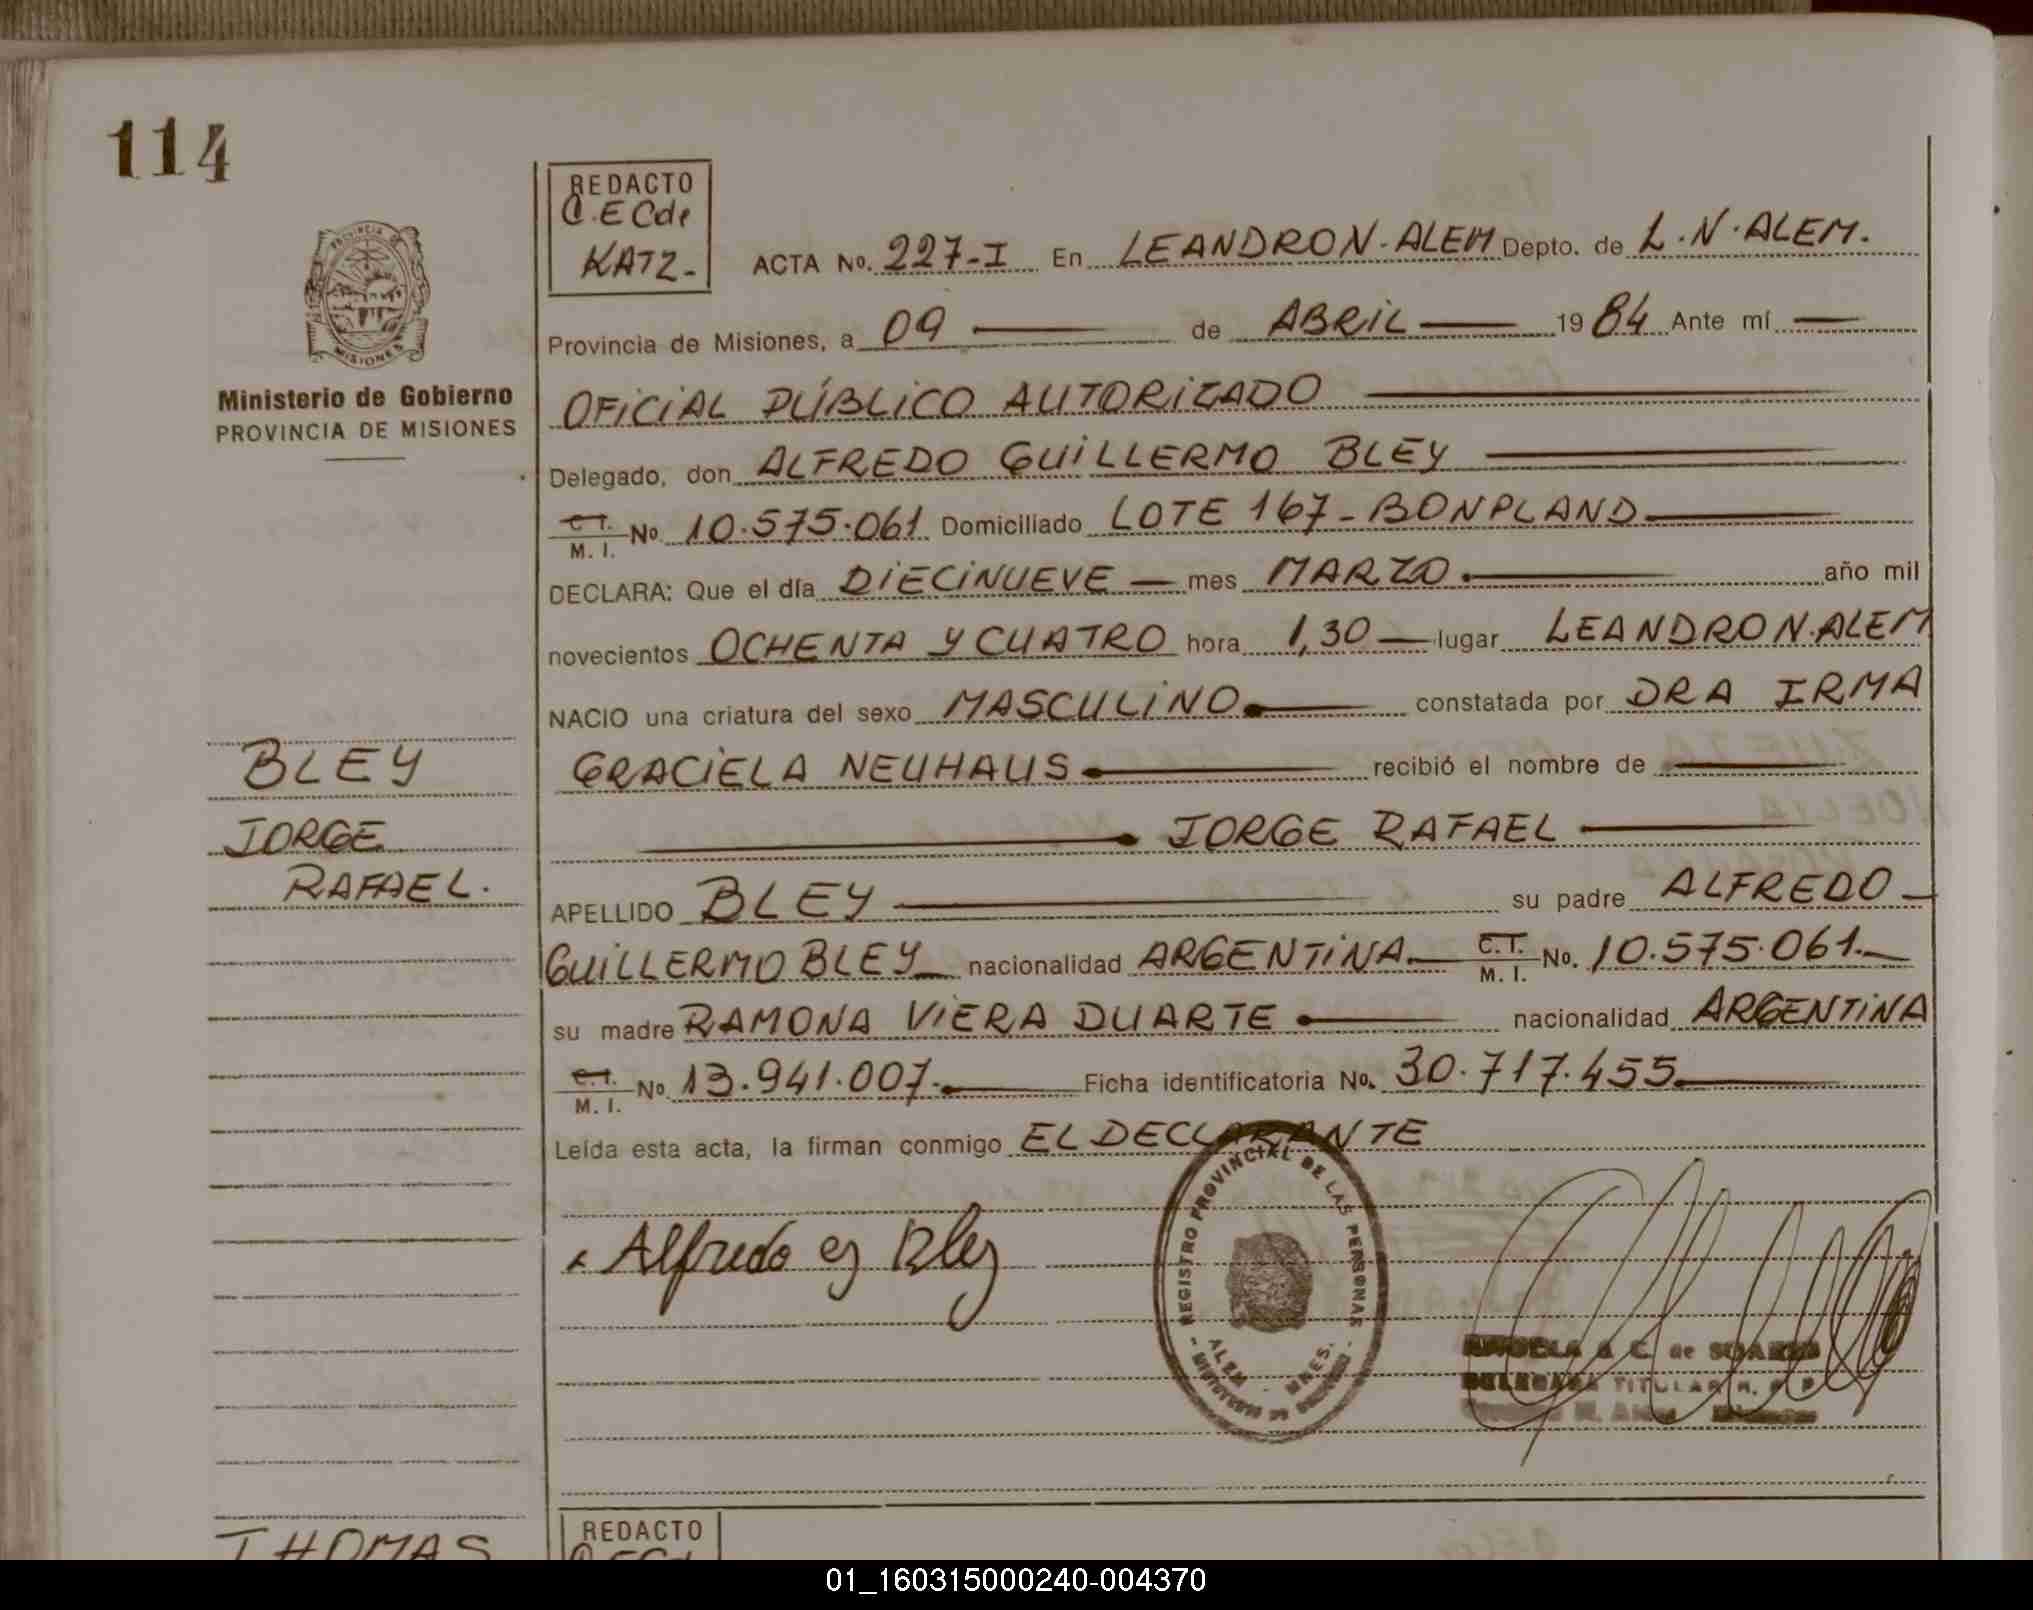 114
PROVINCIA DE
MISIONES
Ministerio de Gobierno
PROVINCIA DE MISIONES
BLEY
JORGE
RAFAEL.
THOMAS
REDACTO
C.E Cde
KATZ-
ACTA No. 227-I En LEANDRO N. ALEM Depto. de L.N. ALEM.
Provincia de Misiones, a 09 de ABRIL 1984 Ante mí
OFICIAL PÚBLICO AUTORIZADO
Delegado, don ALFREDO GUILLERMO BLEY
C.I. M. I. No 10.575.061 Domiciliado LOTE 167-BONPLAND
DECLARA: Que el día DIECINUEVE mes MARZO año mil
novecientos OCHENTA Y CUATRO hora 1,30 lugar LEANDRO N. ALEM
NACIO una criatura del sexo MASCULINO constatada por DRA IRMA
GRACIELA NEUHAUS recibió el nombre de
JORGE RAFAEL
APELLIDO BLEY su padre ALFREDO
GUILLERMO BLEY nacionalidad ARGENTINA C.I. M. I. No. 10.575.061.
su madre RAMONA VIERA DUARTE nacionalidad ARGENTINA
C.I. M. I. No. 13.941.007. Ficha identificatoria No. 30.717.455
Leída esta acta, la firman conmigo EL DECLARANTE
Alfredo G Bley
REGISTRO PROVINCIAL DE LAS PERSONAS
ALEM - MNES.
C. de SOARES
DELEGADA TITULAR R. P.
REDACTO
01_160315000240-004370